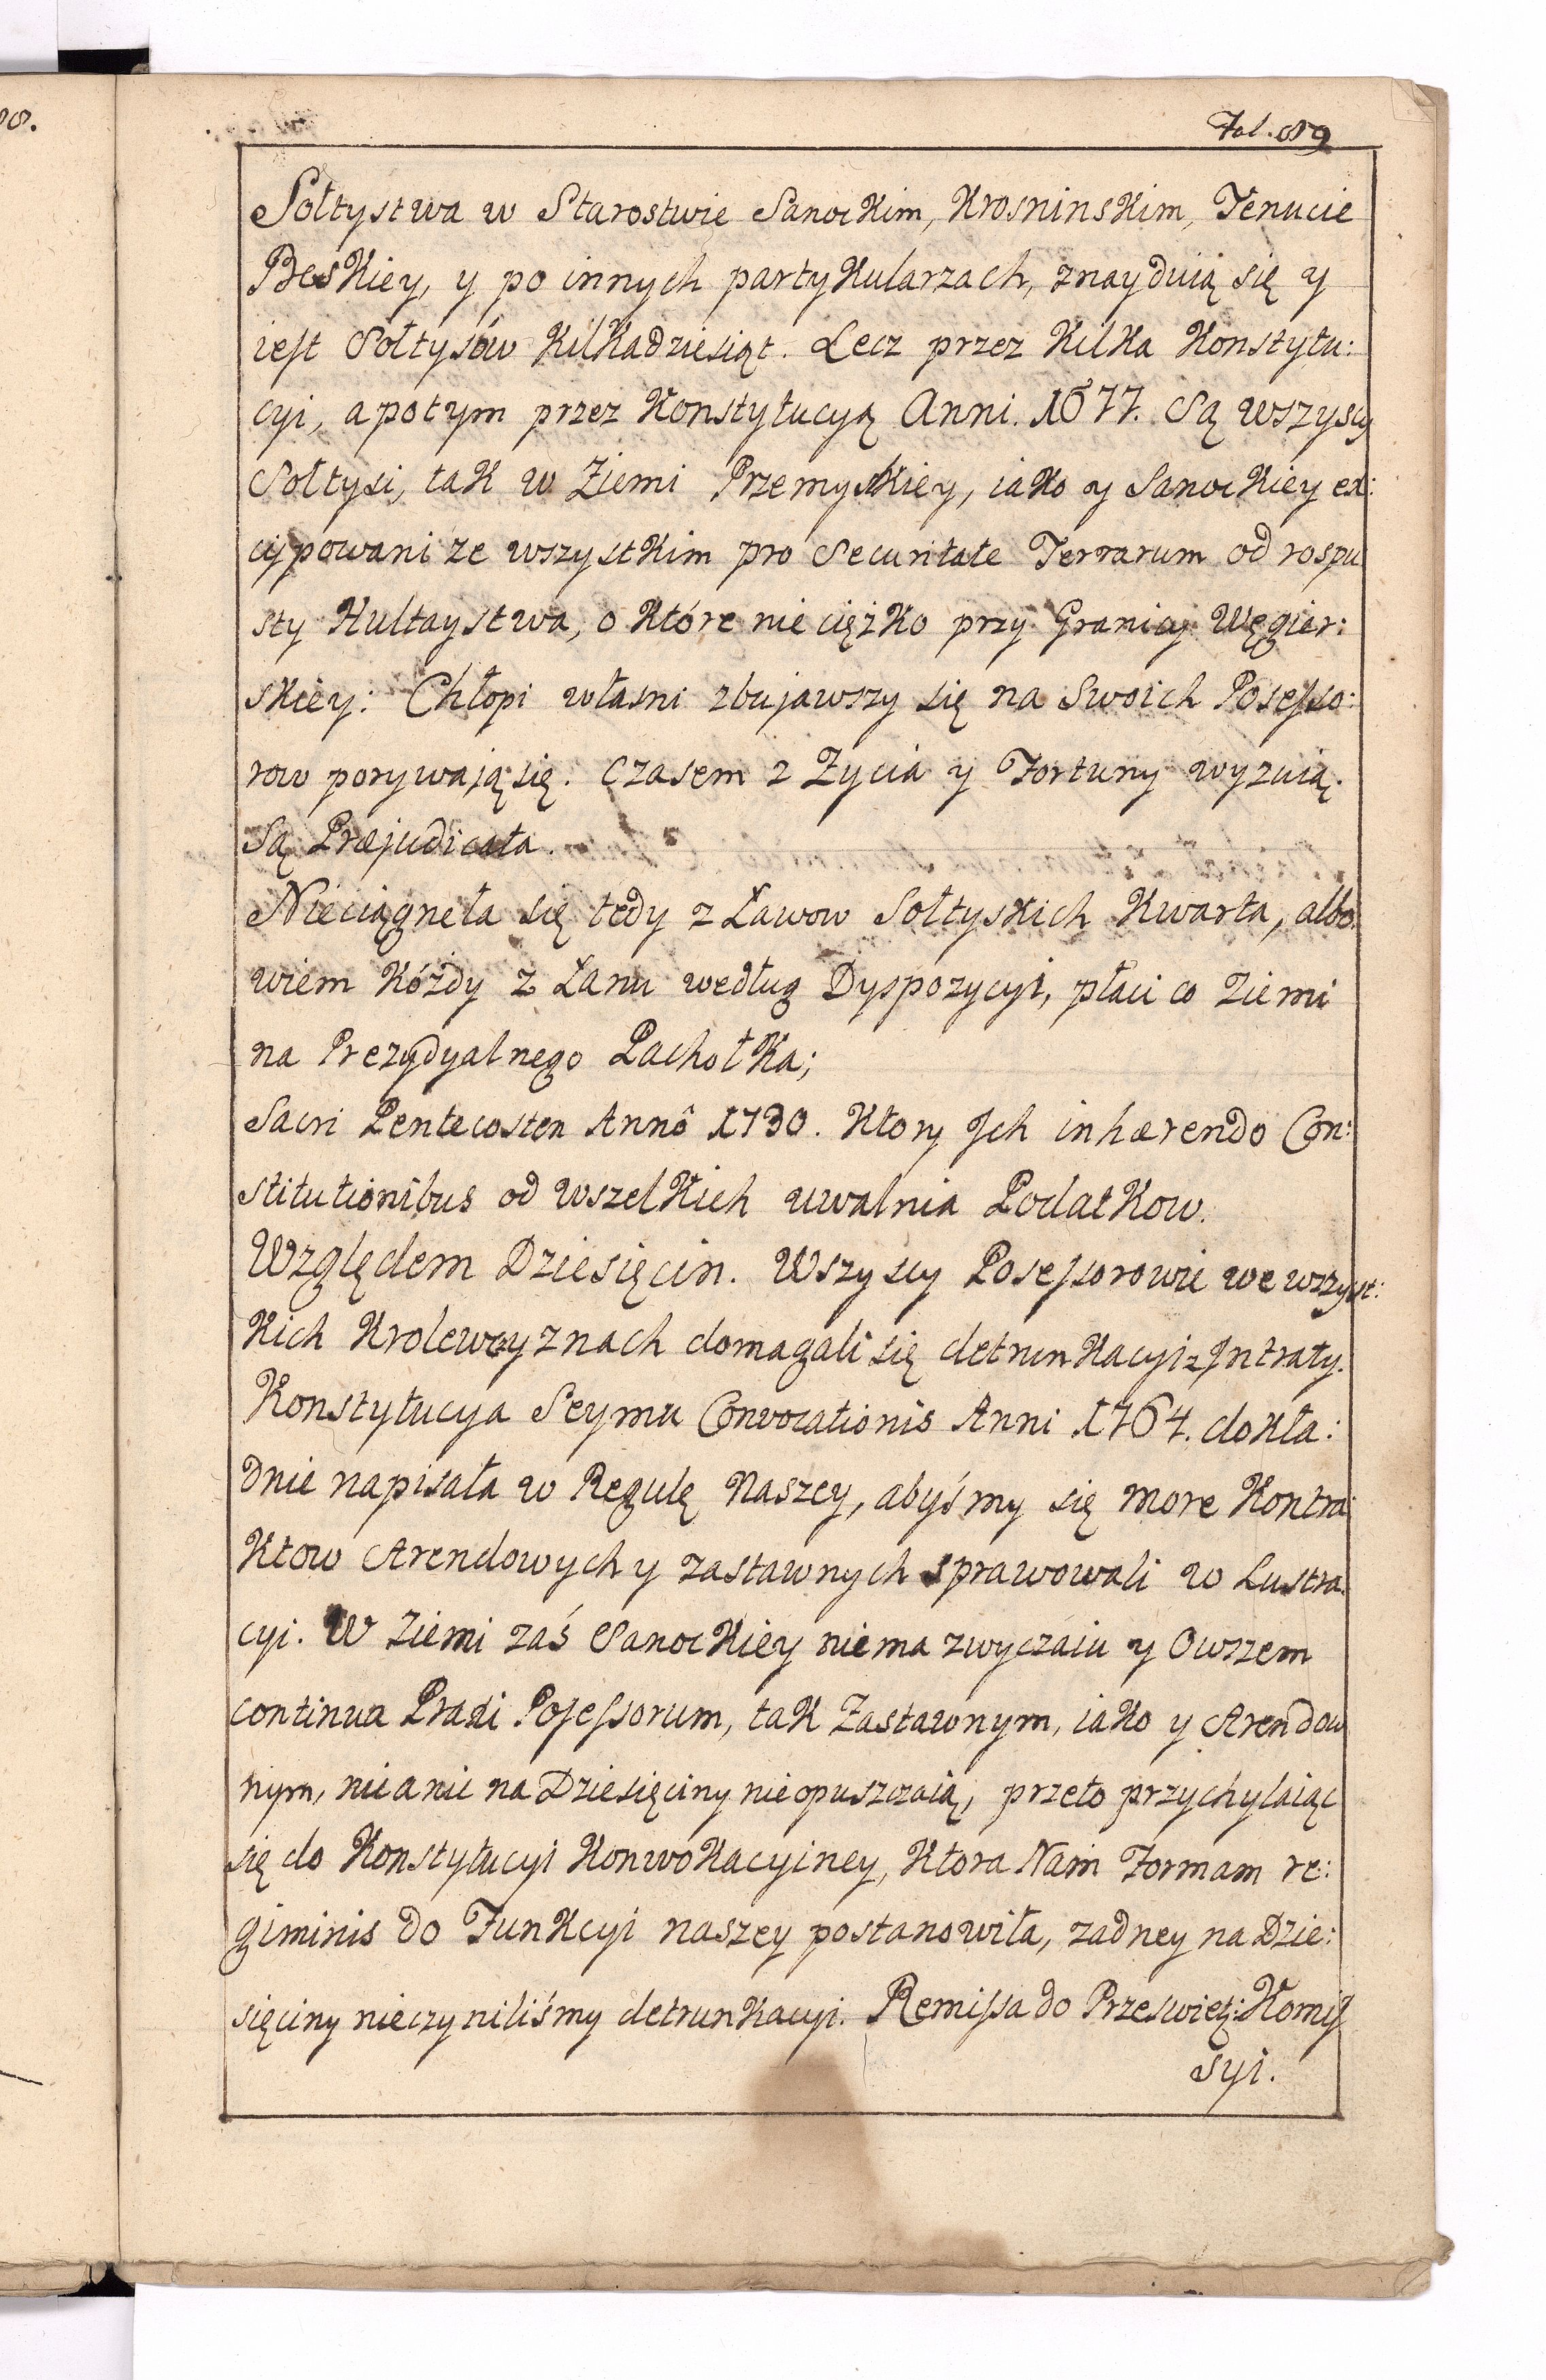 Fol. 89
Sołtystwa w Starostwie Sanockim, Krosninskim, Tenucie
Beskiey, y po innych partykularzach, znayduią się y
iest Sołtysów kilkadziesiąt. Lecz przez kilka Konstytu:
cyi, a potym przez Konstytucyą Anni. 1677. Są wszyscy
Sołtysi, tak w Ziemi Przemyskiey, iako y Sanockiey ex:
cypowani ze wszystkim pro Securitate Terrarum od rospu
sty Hultaystwa, o które nie ciężko przy Granicy Węgier:
skiey: Chłopi własni zbujawszy się na Swoich Posesso:
row porywają się. Czasem z Zycia y Fortuny wyzuią.
Są Præjudicata.
Nieciągneła się tedy z Ławow Sołtyskich Kwarta, albo
wiem kóżdy z Łanu według Dyspozycyi, płaci co Ziemi
na Prezydyalnego Pachołka;
Sacri Pentecosten Annô 1730. Ktory Ich inhærendo Con:
stitutionibus od wszelkich uwalnia Podatkow.
Względem Dziesięcin. Wszyscy Posessorowie we wszyst:
kich Krolewczyznach domagali się detrunkacyi z Intraty.
Konstytucya Seymu Convocationis Anni 1764. dokła:
dnie napisała w Regulę Naszey, abyśmy się more Kontra
ktow Arendowych y zastawnych sprawowali w Lustra.
cyi. W Ziemi zaś Sanockiey niema zwyczaiu y Owszem
continua Praxi Posessorum, tak Zastawnym, iako y Arendow
nym, nic a nic na Dziesięciny nieopuszczaią, przeto przychylaiąc
się do Konstytucyi Konwokacyiney, ktora Nam Formam re:
giminis do Funkcyi naszey postanowiła, zadney na Dzie:
sięciny nieczyniliśmy detrunkacyi. Remissa do Przeswięt: Komis
syi.